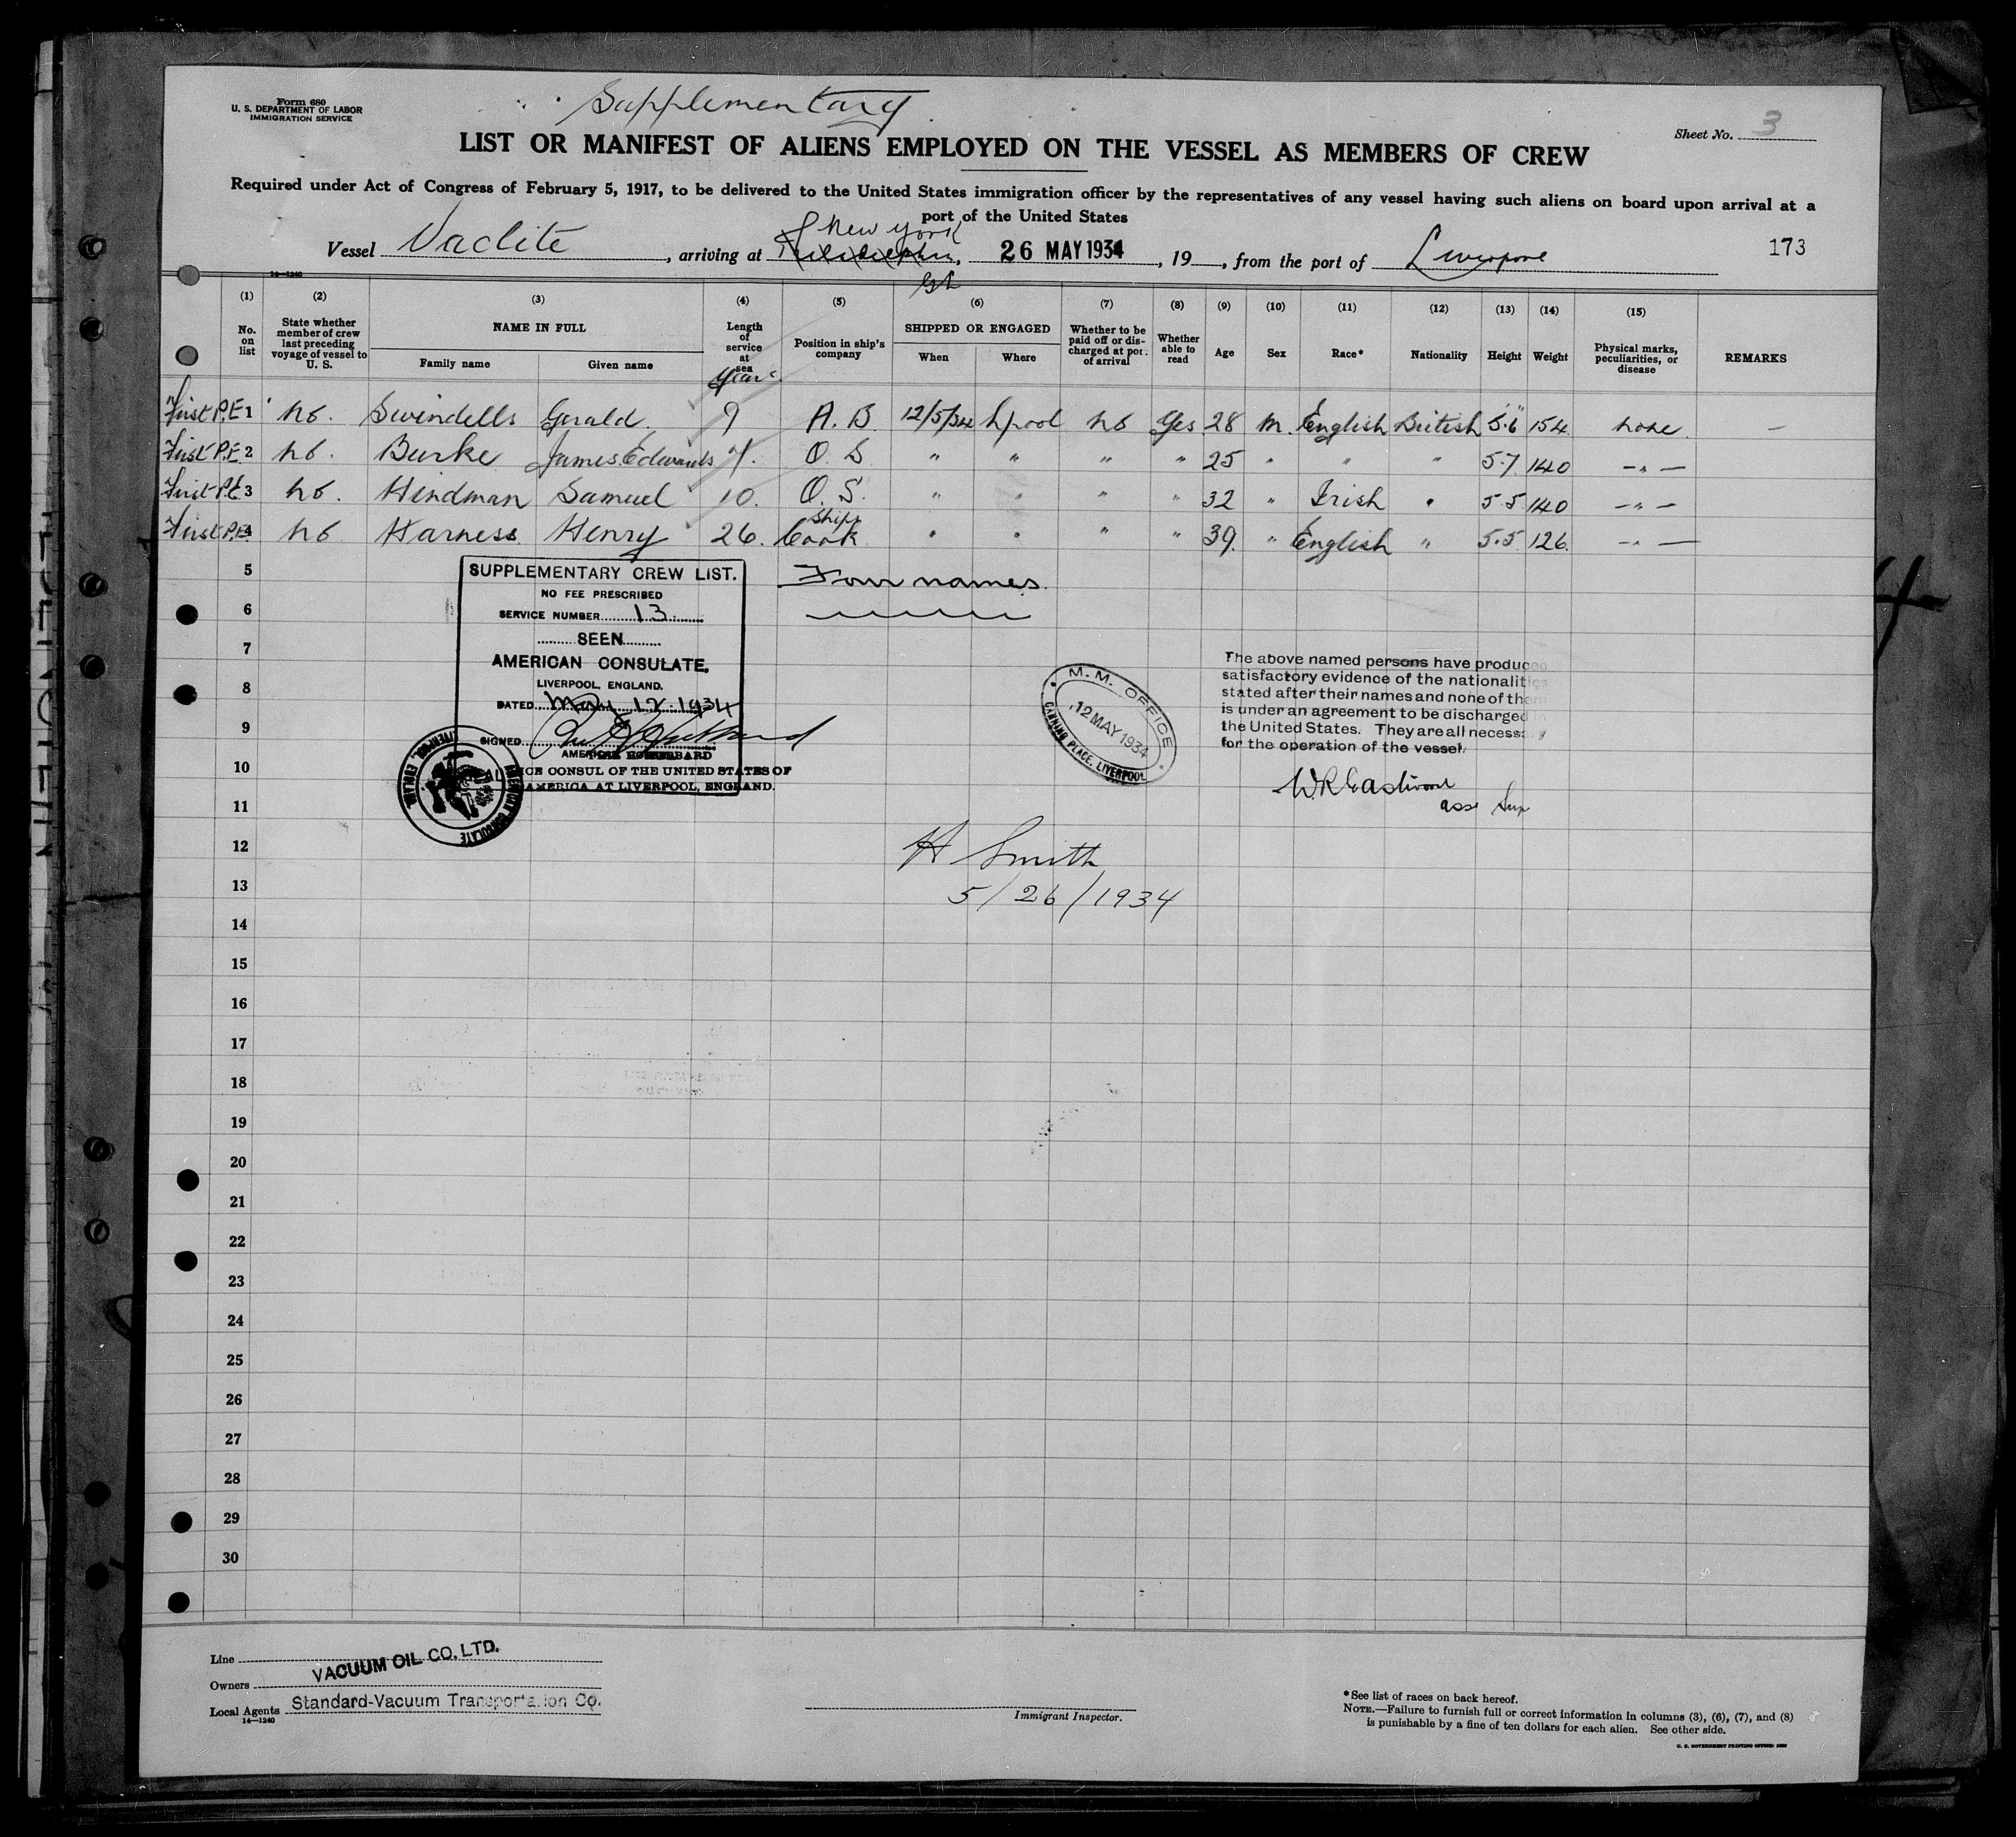 Form 680
U. S. DEPARTMENT OF LABOR
IMMIGRATION SERVICE
Supplementary
Sheet No. 3
LIST OR MANIFEST OF ALIENS EMPLOYED ON THE VESSEL AS MEMBERS OF CREW
Required under Act of Congress of February 5, 1917, to be delivered to the United States immigration officer by the representatives of any vessel having such aliens on board upon arrival at a
port of the United States
New York
Vessel Vaclite, arriving at Philadelphia, 26 MAY 1934, 19, from the port of Liverpool
173
14—1240
(1) (2) (3) (4) (5) (6) (7) (8) (9) (10) (11) (12) (13) (14) (15)
No. on list
State whether member of crew last preceding voyage of vessel to U. S.
NAME IN FULL
Family name Given name
Length of service at sea
Years
Position in ship's company
SHIPPED OR ENGAGED
When Where
Whether to be paid off or discharged at port of arrival
Whether able to read
Age
Sex
Race*
Nationality
Height
Weight
Physical marks, peculiarities, or disease
REMARKS
First P.E. 1 No. Swindells Gerald. 9 A. B. 12/5/34 Lpool No Yes 28 M. English British 5.6 154 None. —
First P.E. 2 No. Burke James Edwards 7. O. S " " " " 25 " " " 5.7 140 — " —
First P.E. 3 No. Hindman Samuel 10. O. S. " " " " 32 " Irish " 5.5 140 — " —
First P.E. 4 No Harness Henry 26. Ships Cook " " " " 39. " English " 5.5 126. — " —
5
6
7
8
9
10
11
12
13
14
15
16
17
18
19
20
21
22
23
24
25
26
27
28
29
30
Four names.
SUPPLEMENTARY CREW LIST.
NO FEE PRESCRIBED
SERVICE NUMBER 13
SEEN
AMERICAN CONSULATE,
LIVERPOOL, ENGLAND.
DATED May 12. 1934
SIGNED
VICE CONSUL OF THE UNITED STATES OF
AMERICA AT LIVERPOOL, ENGLAND.
AMERICAN CONSULATE
LIVERPOOL, ENGLAND.
M. M. OFFICE
12 MAY 1934
CANNING PLACE, LIVERPOOL
The above named persons have produced
satisfactory evidence of the nationalities
stated after their names and none of them
is under an agreement to be discharged in
the United States. They are all necessary
for the operation of the vessel.
W.R. Eastwood
Asst Sup
H Smith
5/26/1934
Line
VACUUM OIL CO. LTD.
Owners
Local Agents Standard-Vacuum Transportation Co.
14—1240
Immigrant Inspector.
*See list of races on back hereof.
NOTE.—Failure to furnish full or correct information in columns (3), (6), (7), and (8)
is punishable by a fine of ten dollars for each alien. See other side.
U. S. GOVERNMENT PRINTING OFFICE: